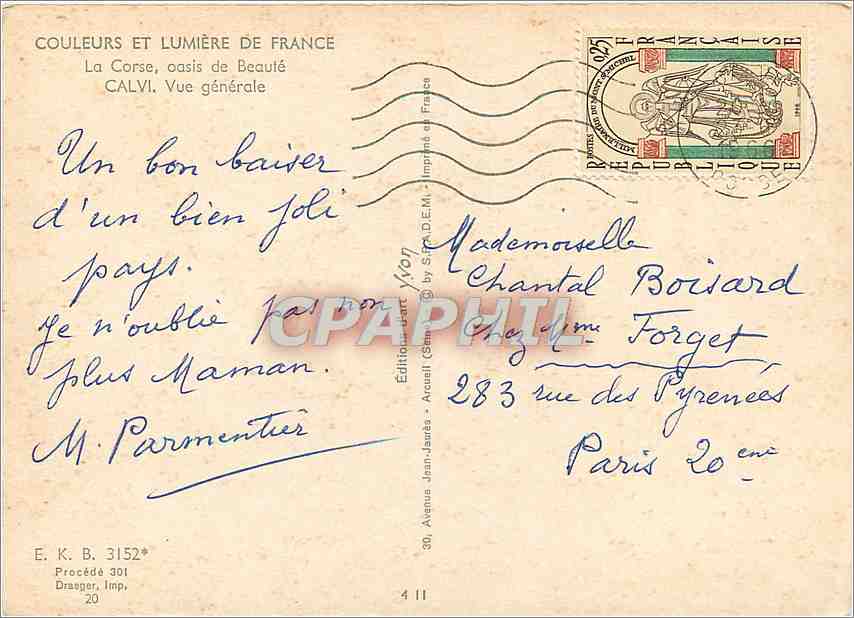 COULEURS ET LUMIÈRE DE FRANCE
La Corse, oasis de Beauté
CALVI. Vue générale
Un bon baiser
d'un bien joli
pays.
Je n'oublie pas non
plus Maman.
M. Parmentier
E. K. B. 3152*
Procédé 301
Draeger, Imp.
20
4 11
30, Avenue Jean-Jaurès - Arcueil (Seine) © by S.P.A.D.E.M. - Imprimé en France
Editions d'art Yvon
0,25 FRANÇAISE
MILLÉNAIRE DU MONT-ST-MICHEL
POSTES
1966
REPUBLIQUE
Mademoiselle
Chantal Boisard
Chez Mme Forget
283 rue des Pyrenées
Paris 20 eme
CPAPHIL